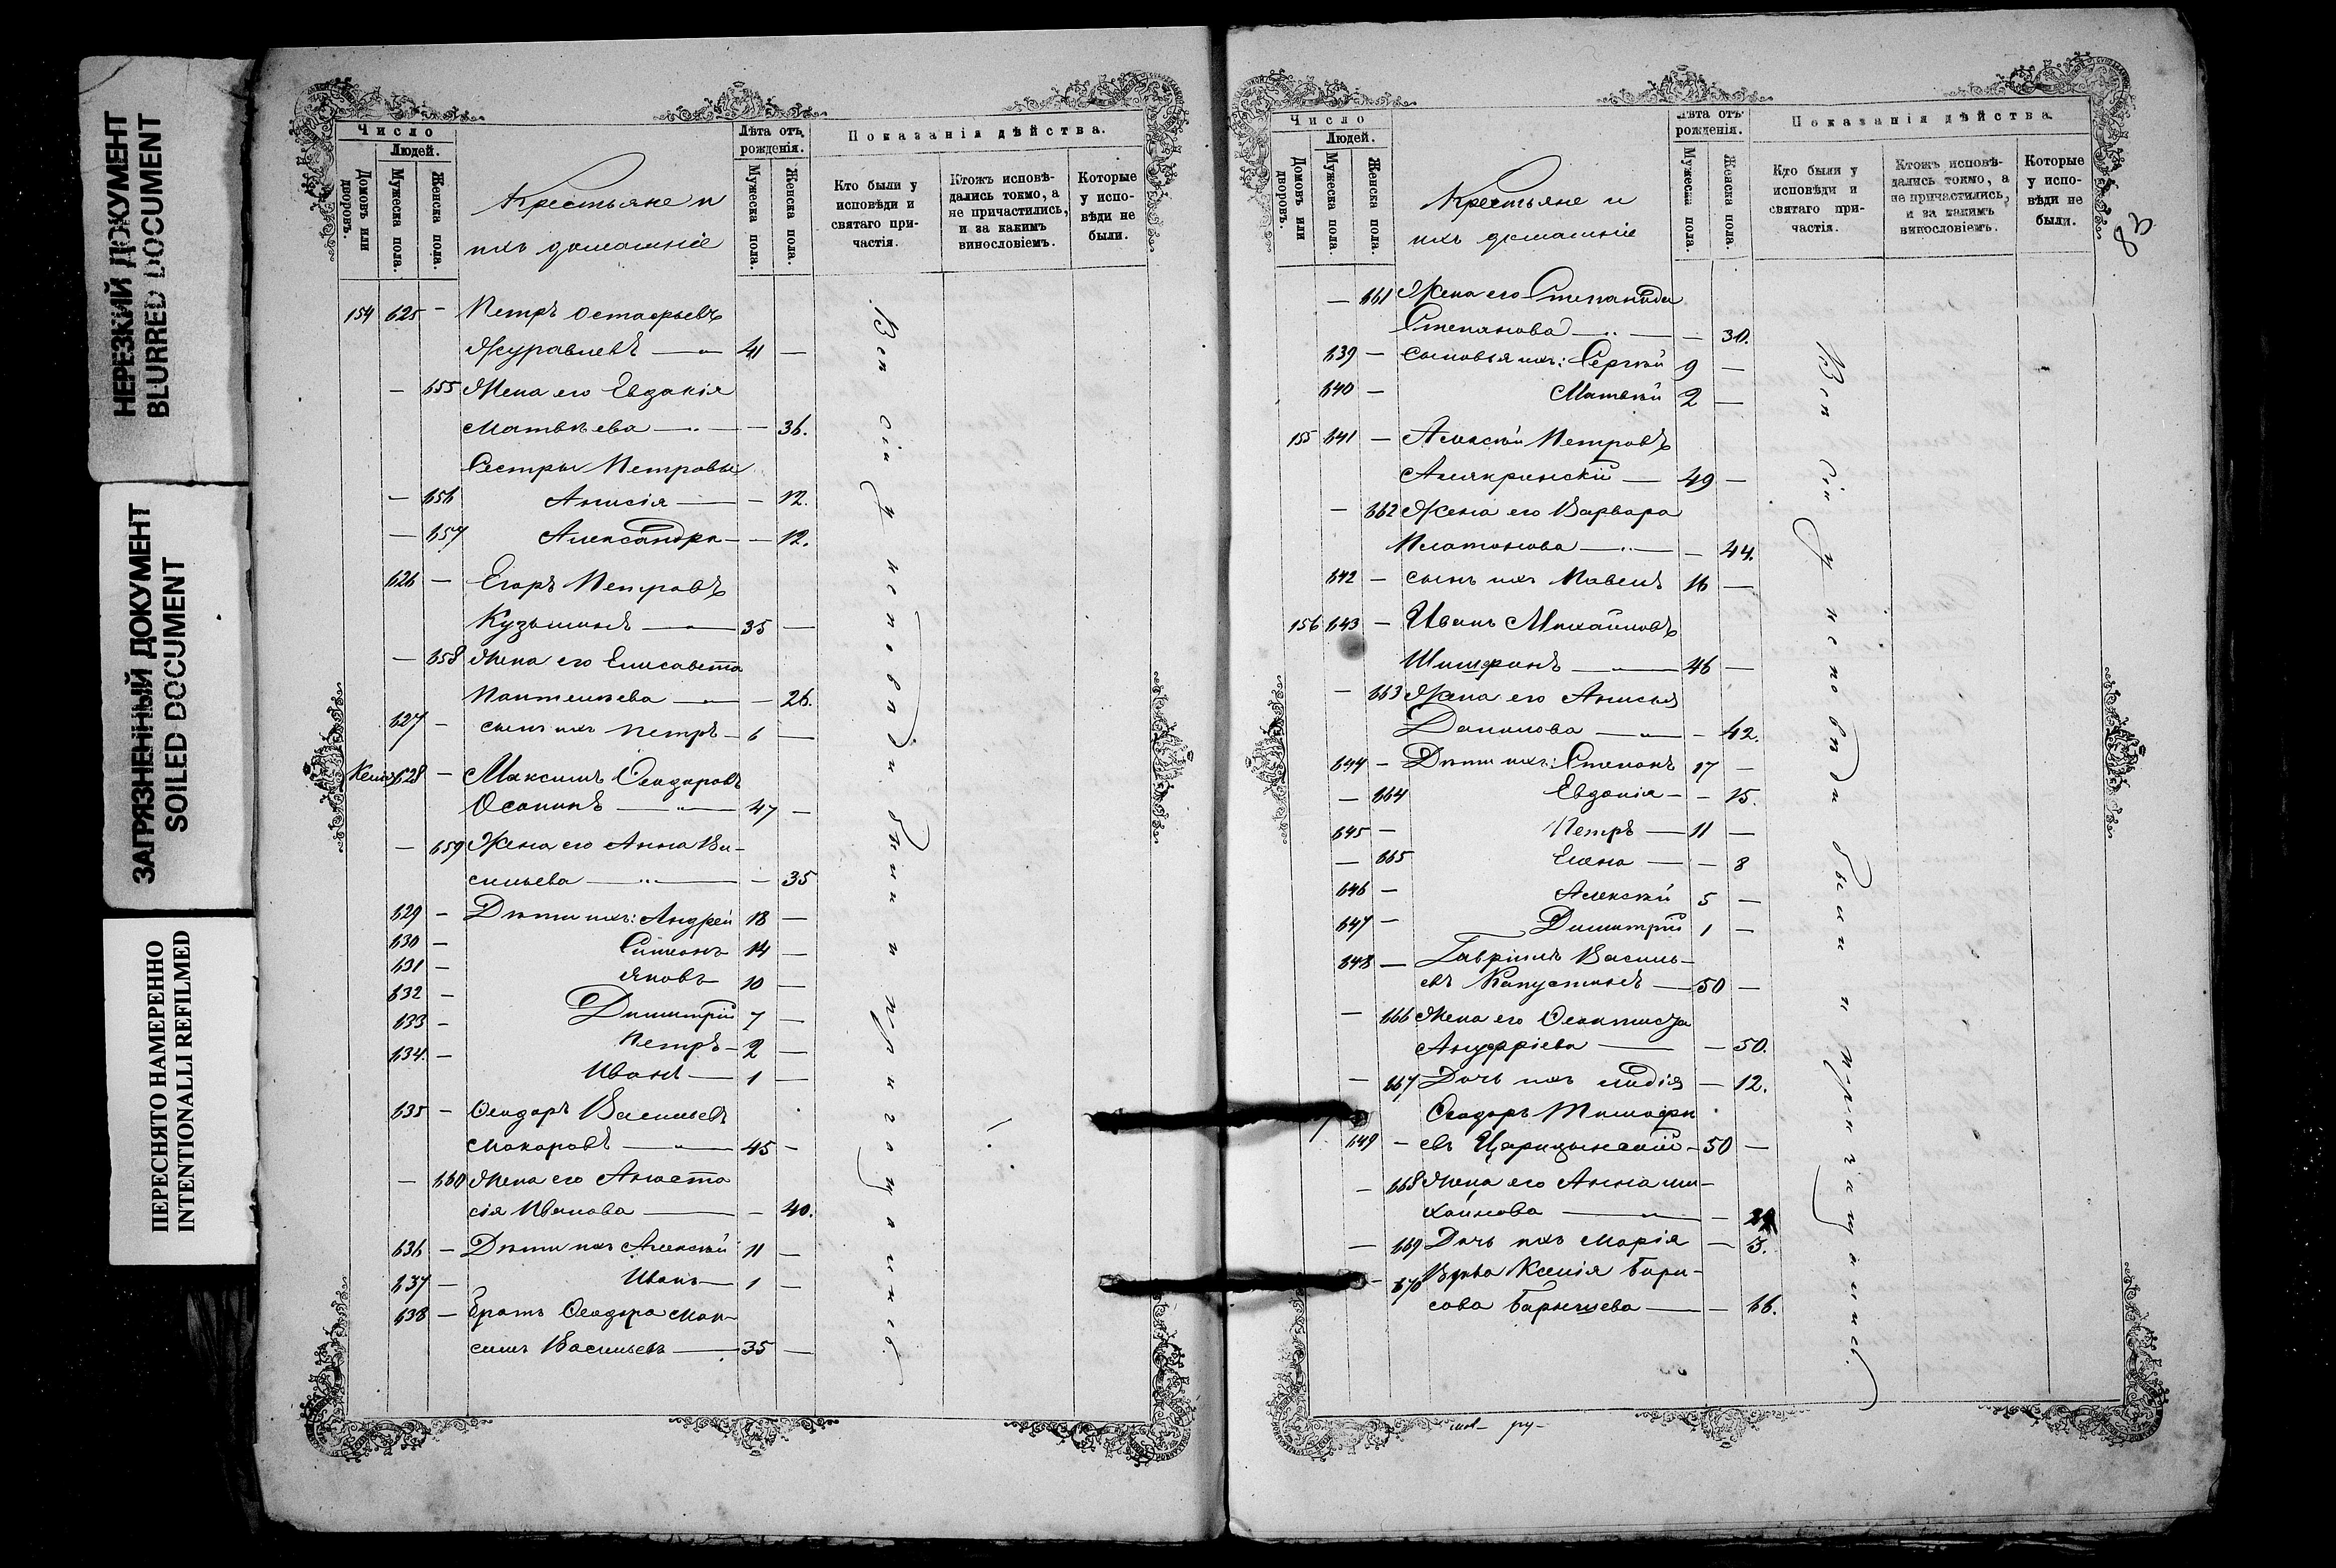 НЕРЕЗКИЙ ДОКУМЕНТ
BLURRED DOCUMENT
ЗАГРЯЗНЕННЫЙ ДОКУМЕНТ
SOILED DOCUMENT
ПЕРЕСНЯТО НАМЕРЕННО
INTENTIONALLI REFILMED
Число
Людей.
Домовъ или дворовъ.
Мужеска пола.
Женска пола.
Крестьяне и
ихъ домашніе
Лѣта отъ рожденія.
Мужеска пола.
Женска пола.
Показанія дѣйства.
Кто были у исповѣди и святаго при-частія.
Ктожъ исповѣ-дались токмо, а не причастились, и за какимъ винословіемъ.
Которые у испо-вѣди не были.
154 625 - Петръ Остафьевъ
Журавлевъ — „ — 41 —
— 655 Жена его Евдокія
Матвѣева — „ — — 36.
Сестры Петровы
— 656 Анисія — — 12.
— 657 Александра — — 12.
626 — Егоръ Петровъ
Кузьминъ — „ — 35 —
— 658 Жена его Елисавета
Пантелѣева — „ — — 26.
627 — сынъ ихъ Петръ — 6 —
628 — Максимъ Ѳеодоровъ
Осокинъ — „ — 47 —
— 659 Жена его Анна Ва-
сильева — „ — — 35
629 — Дѣти ихъ: Андрей 18 —
630 — Симеонъ 14 —
631 — Яковъ 10 —
632 — Димитрій 7 —
633 — Петръ — 2 —
634. — Иванъ — 1 —
635 — Ѳеодоръ Васильевъ
Макаровъ — „ — 45 —
— 660 Жена его Анаста
сія Иванова — — 40.
636 — Дѣти ихъ Алексѣй 11 —
637 — Иванъ — 1 —
638 — Братъ Ѳеодора Мак-
симъ Васильевъ — 35 —
Всѣ сіи у исповѣди были и пріобщались.
Число
Людей.
Домовъ или дворовъ.
Мужеска пола.
Женска пола.
Крестьяне и
ихъ домашніе
Лѣта отъ рожденія.
Мужеска пола.
Женска пола.
Показанія дѣйства.
Кто были у исповѣди и святаго при-частія.
Ктожъ исповѣ-дались токмо, а не причастились, и за какимъ винословіемъ.
Которые у испо-вѣди не были.
— 661 Жена его Степанида
Степанова — „ — — 30.
639 — Сыновья ихъ: Сергѣй 9 —
640 — Матвѣй 2 —
155 641 — Алексѣй Петровъ
Амякринскій — 49 —
— 662 Жена его Варвара
Платонова — „ — — 44.
642 — сынъ ихъ Павелъ 16 —
156 643 — Иванъ Михайловъ
Шишкинъ — „ — 46 —
— 663 Жена его Анисья
Данилова — „ — — 42.
644 — Дѣти ихъ: Степанъ 17 —
— 664 Евдокія — — 15.
645 — Петръ — 11 —
— 665 Елена — — 8
646 — Алексѣй 5 —
647 — Димитрій 1 —
648 — Гавріилъ Василь-
евъ Капустинъ — 50 —
— 666 Жена его Ѳеоктиста
Ануфріева — — 50.
— 667 Дочь ихъ Лидія — 12.
Ѳеодоръ Тимофе
649 — евъ Царицынскій — 50 —
— 668 Жена его Анна Ми-
хайлова — „ — —
— 669 Дочь ихъ Марія — 5.
— 670 Вдова Ксенія Бори-
сова Барышева — — 66.
Всѣ сіи у исповѣди были и пріобщались.